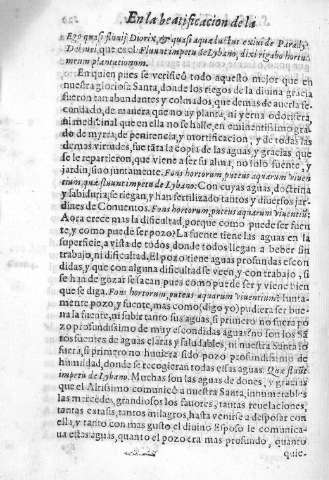 En la beatificacion de la
Ego quasi fluuij Diorix, & quasi aquæ ductus exiui de Parady-
Domui, que es el: Fluunt impetu de Lybano, dixi rigabo hortum
meum plantationum.
En quien pues se verificò todo aquesto mejor que en
nuestra gloriosa Santa, donde los riegos de la diuina gracia
fueron tan abundantes y colmados, que demas de auerla fe-
cundado, de manera que no ay planta, ni yerua odorifera,
ni medicinal que en ella no se halle, en eminentissimo gra-
do de myrra, de penitencia, y mortificacion, y de todas las
demas virtudes, fue tãta la copia de las aguas y gracias que
se le repartieron, que viene a ser su alma, no solo fuente, y
jardin, sino juntamente. Fons hortorum, puteus aquarum viuen
tium, quæ fluunt impetu de Lybano: Con cuyas aguas, doctrina
y sabiduria, se riegan, y han fertilizado tantos y diuersos jar-
dines de Conuentos. Fons hortorum, puteus aquarum viuentiũ.
Aora crece mas la dificultad, porque como puede ser fuen
te, y como puede ser pozo? La fuente tiene las aguas en la
superficie, a vista de todos, donde todos llegan a beber sin
trabajo, ni dificultad. El pozo tiene aguas profundas escon
didas, y que con alguna dificultad se veen, y con trabajo, si
se han de gozar se sacan pues como puede ser y viene bien
que se diga. Fons hortorum, puteus aquarum viuentium? Iunta-
mente pozo, y fuente, mas como (digo yo) pudiera ser bue-
na la fuente, ni subir tanto sus aguas, si primero no fuera po
zo profundissimo de muy escondidas aguas? no son los Sã
tos fuentes de aguas claras y saludables, ni nuestra Santa lo
fuera, si primero no huuiera sido pozo profundissimo de
humildad, donde se recogieran todas essas aguas. Quæ fluũt
impetu de Lybano. Muchas son las aguas de dones, y gracias
que el Altissimo comunicò a nuestra Santa, innumerables
las mercedes, grandiosos los fauores, tantas reuelaciones,
tantas extasis, tantos milagros, hasta venirse a desposar con
ella, y tanto con mas gusto el diuino Esposo le comunica-
ua estas aguas, quanto el pozo era mas profundo, quanto
quie-